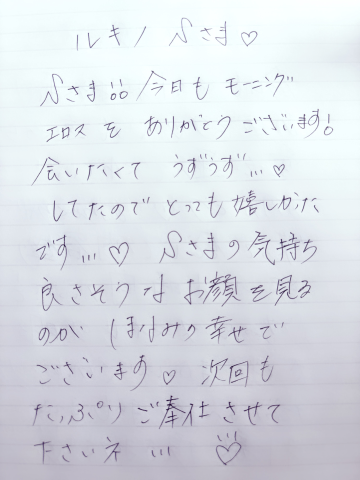 ルキノ Nさま♡
Nさま!! 今日も モーニング
エロスを ありがとうございます!
会いたくて うずうず...♡
してたので とっても嬉しかった
です...♡ Nさまの気持ち
良さそうな お顔を見る
のが ほなみの幸せで
ございます♡ 次回も
たっぷり ご奉仕させて
ださいネ... ♡